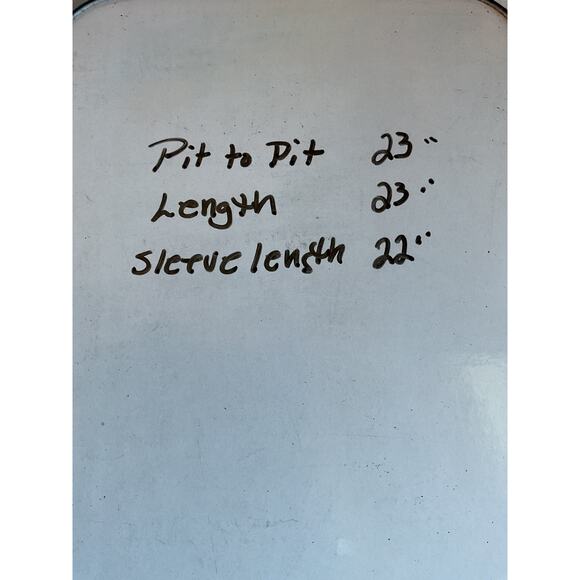 Pit to Pit 23"
Length 23"
Sleeve length 22"